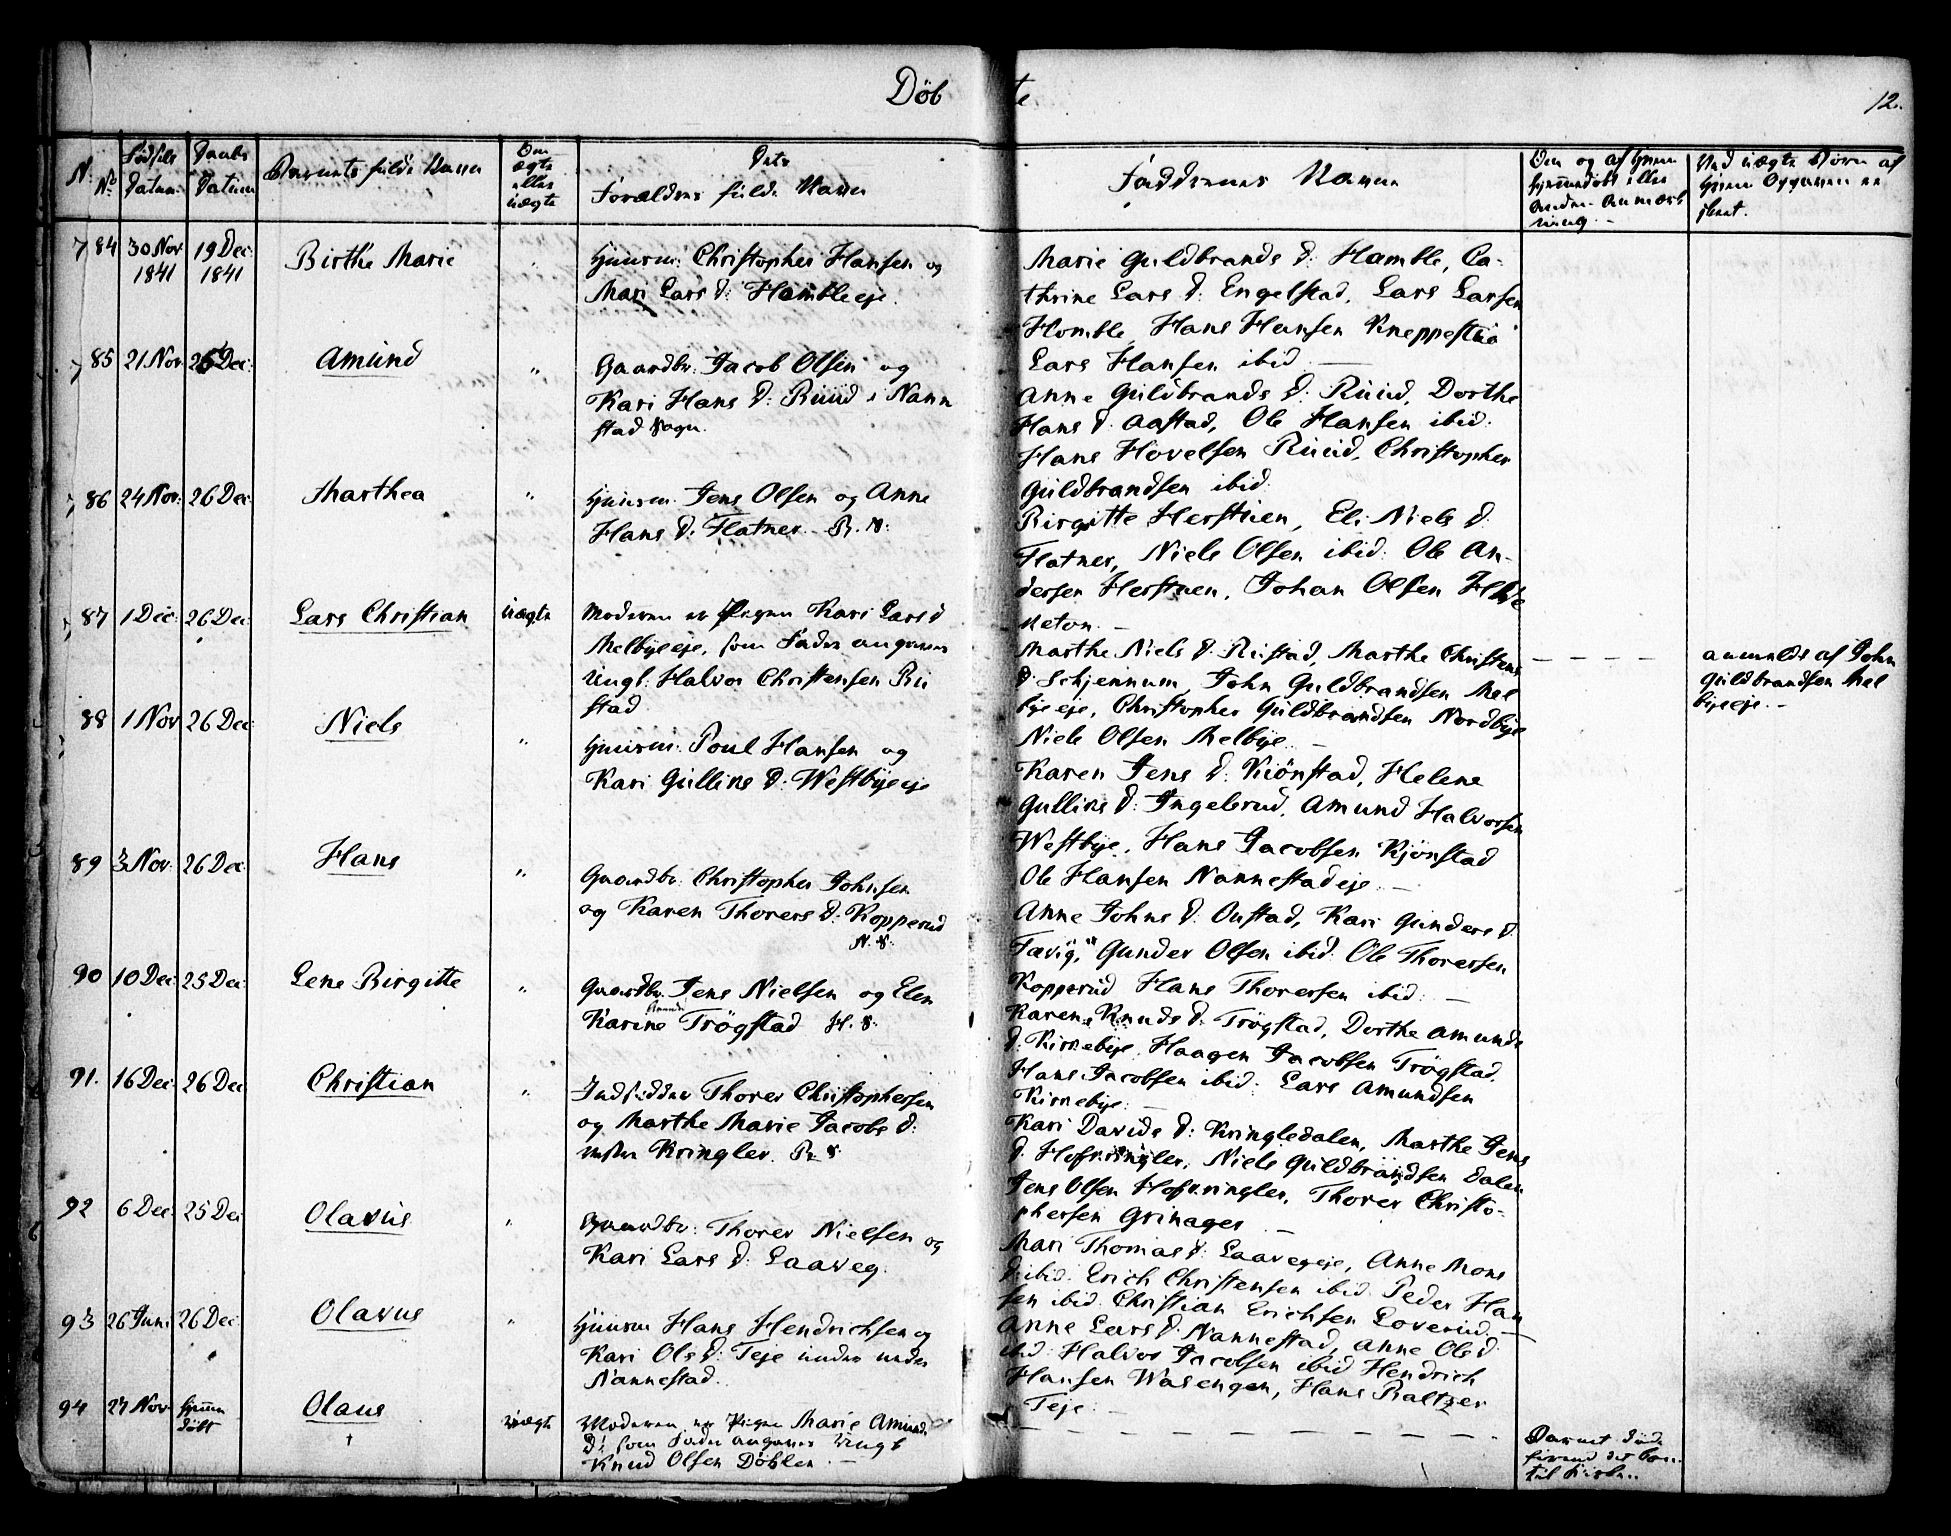 Døbte
12.
N.
No
Fødsels Datum.
Daabs Datum
Barnets fulde Navn
Om ægte eller uægte
Dets Forældres fulde Navn
Faddernes Navne
Om og af hvem hjemmedøbt eller anden Anmærkning.
Ved uægte Børn af hvem Opgaven er skeet.
84 30 Nov 1841 19 Dec: 1841 Birthe Marie "
Huusm: Christopher Hansen og
Mari Lars d: Homble eje.
Marie Guldbrands d: Homble, Ca-
thrine Lars d: Engelstad, Lars Larsen
Homble, Hans Hansen Kneppestuo
Lars Hansen ibid —
85 21 Nov 26 Dec: Amund "
Gaardbr: Jacob Olsen og
Kari Hans d: Ruud i Nann
stad Sogn.
Anne Guldbrands d: Ruud, Dorthe
Hans d: Aastad, Ole Hansen ibid:
Hans Hovelsen Ruud, Christopher
Guldbrandsen ibid:
86 24 Nov: 26 Dec: Marthea "
Huusm: Jens Olsen og Anne
Hans d: Flatner. B. S:
Birgitte Herstuen, Eli Niels d:
Flatner, Niels Olsen ibid: Ole An-
dersen Herstuen, Johan Olsen
neton. —
87 1 Dec: 26 Dec: Lars Christian uægte
Moderen er Pigen Kari Lars d
Melbye eje, som Fader angives
Ungk: Halvor Christensen Ru
stad
Marthe Niels d: Rustad, Marthe Christens
d: Schjennum, John Guldbrandsen Mel
bye eje, Christopher Guldbrandsen Nordbye
Niels Olsen Melbye. —
anmeldt af John
Guldbrandsen Mel
bye eje. —
88 1 Nov 26 Dec: Niels "
Huusm: Poul Hansen og
Kari Gulliks d: Westbye eje
Karen Jens d: Kiönstad, Helene
Gulliks d: Ingelsrud, Amund Halvorsen
Westbye, Hans Jacobsen Kjönstad
Ole Hansen Nannestad eje. —
89 3 Nov: 26 Dec: Hans "
Gaardbr: Christopher Johnsen
og Karen Thorers d: Kopperud
N. S:
Anne Johns d: Oustad, Kari Gunders d:
Tævig, Gunder Olsen ibid: Ole Thoresen
Kopperud Hans Thoresen ibid: —
90 10 Dec: 25 Dec: Lene Birgitte "
Gaardbr. Jens Nielsen og Elen
Karine Trögstad H. S:
Karen Knuds d: Trögstad, Dorthe Amunds
d: Kirkebye, Haagen Jacobsen Trögstad.
Hans Jacobsen ibid: Lars Amundsen
Kirkebye. —
91. 16 Dec: 26 Dec Christian "
Indsidder Thorer Christophersen
og Marthe Marie Jacobs d:
nedre Kringler. B. S
Kari Davids d: Kringledalen, Marthe Jens
d: Hofkringler, Niels Guldbrandsen Dalen
Jens Olsen Hofkringler, Thorer Christo-
phersen Grinager —
92 6 Dec: 25 Dec Olavus "
Gaardbr: Thorer Nielsen og
Kari Lars d: Laaveg.
Mari Thomas d: Laaveg eje, Anne Mons
d: ibid: Erich Christensen ibid: Peder Han
sen ibid: Christian Erichsen Loverud. —
93 26 Juni 26 Dec: Olavus "
Huusm Hans Hendrichsen og
Kari Ols d: Teje under nedre
Nannestad.
Anne Lars d: Nannestad, Anne Ole d:
ibid: Halvor Jacobsen ibid Hendrich
Hansen Wasengen, Hans Baltzer
Teje. —
94 27 Nov hjemmedøbt Olaus † uægte
Moderen er Pigen Marie Amunds
D: som Fader angives Ungk
Knud Olsen Döhlen. —
Barnet døde
forend det bar..
til Kirke..